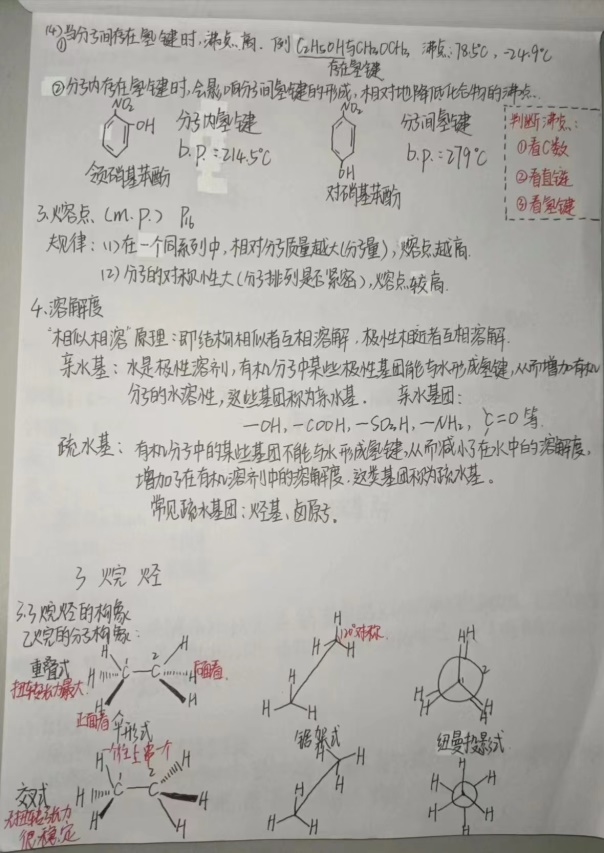 (4)①当分子间存在氢键时,沸点高. 例 C₂H₅OH与CH₃OCH₃ 沸点:78.5℃, -24.9℃
存在氢键
②分子内存在氢键时,会影响分子间氢键的形成,相对地降低化合物的沸点.
NO₂
OH
分子内氢键
b.p.:214.5℃
邻硝基苯酚
NO₂
OH
分子间氢键
b.p.:279℃
对硝基苯酚
判断沸点:
①看C数
②看直链
③看氢键
3.熔点.(m.p.) P16
规律:(1)在一个同系列中,相对分子质量越大(分子量),熔点越高.
(2)分子的对称性大(分子排列是否紧密),熔点较高.
4.溶解度
"相似相溶"原理:即结构相似者互相溶解,极性相近者互相溶解.
亲水基:水是极性溶剂,有机分子中某些极性基团能与水形成氢键,从而增加有机
分子的水溶性,这些基团称为亲水基. 亲水基团:
—OH,—COOH,—SO₃H,—NH₂, C=O 等.
疏水基:有机分子中的某些基团不能与水形成氢键,从而减小了在水中的溶解度,
增加了在有机溶剂中的溶解度.这类基团称为疏水基。
常见疏水基团:烃基、卤原子。
3 烷烃
3.3烷烃的构象
乙烷的分子构象:
重叠式
扭转张力最大
H H H 1 C — C 2 H H H
同面看
正面看
伞形式
一个往上第一个
H H H H H H
120°对称
锯架式
H H 2 H H H H
纽曼投影式
交叉式
无扭转张力
很稳定
H H H 1 C — C 2 H H H
H H H H H H
H H H H H H